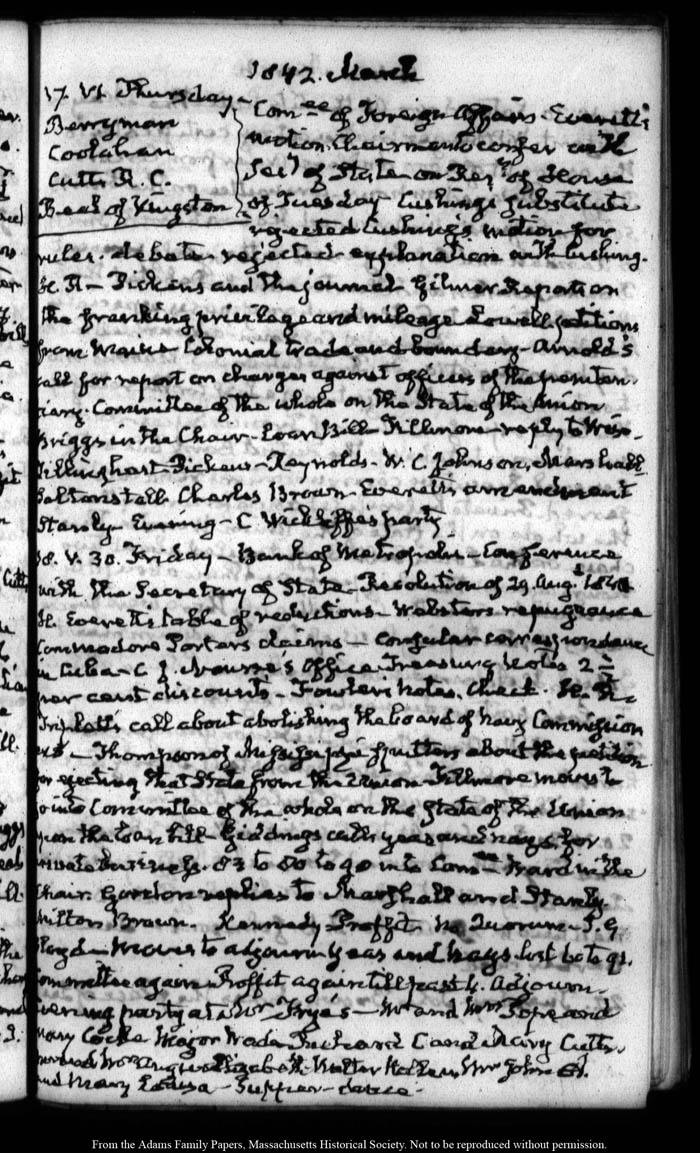 1842. March
17. VI. Thursday
Berryman
Coolahan
Cutts R. C.
Beal of Kingston
Com.ee of Foreign Affairs. Everett's
motion Chairman to confer with
Secy of State on Resn of House
of Tuesday Cushing's substitute
rejected Cushing's motion for
rules. debate rejected explanation with Cushing.
H. R. - Pickens and the journal Gilmer Report on
the franking privilege and mileage Lowell petitions
from Maine Colonial trade and boundary - Arnold's
call for report on charges against officers of the peniten-
tiary. Committee of the whole on the State of the Union
Briggs in the Chair - Loan Bill - Fillmore - reply to Wise -
Tillinghast - Pickens - Reynolds - W. C. Johnson, Marshall
Saltonstall Charles Brown - Everett's amendment
Stanly - Evening - C Wickliffe's party
18. V. 30. Friday - Bank of Metropolis - Conference
with the Secretary of State - Resolution of 29 Augt
H. Everett's table of reductions - Webster's repugnance
Commodore Porter's claims - consular correspondence
in Cuba - C J. Nourse's Office Treasury notes 2 1/2
per cent discounts - notes. Check. H. R.
Triplett's call about abolishing the board of Navy Commission
ers - Thompson of Mississippi about the petition
for ejecting that State from the Union - Fillmore moves to
go into Committee of the whole on the State of the Union
upon the loan bill - Giddings calls yeas and nays, for
private business. 83 to 80 to go into Com.ee Ward in the
Chair. Gordon replies to Marshall and Stanly
Milton Brown. Kennedy Proffit. no Quorum - J. G
Floyd - moves to adjourn yeas and nays. lost 60 to 91.
Committee again Proffit again till past 4. Adjourn.
Evening party at Dr Frye's - Mr and Mrs Pope and
Mary Cocke Major Wade Richard C and Mary Cutts.
Mrs Angus Elizabeth. Walter Hellen, Mrs John A.
and Mary Louisa - Supper - dance.
From the Adams Family Papers, Massachusetts Historical Society. Not to be reproduced without permission.